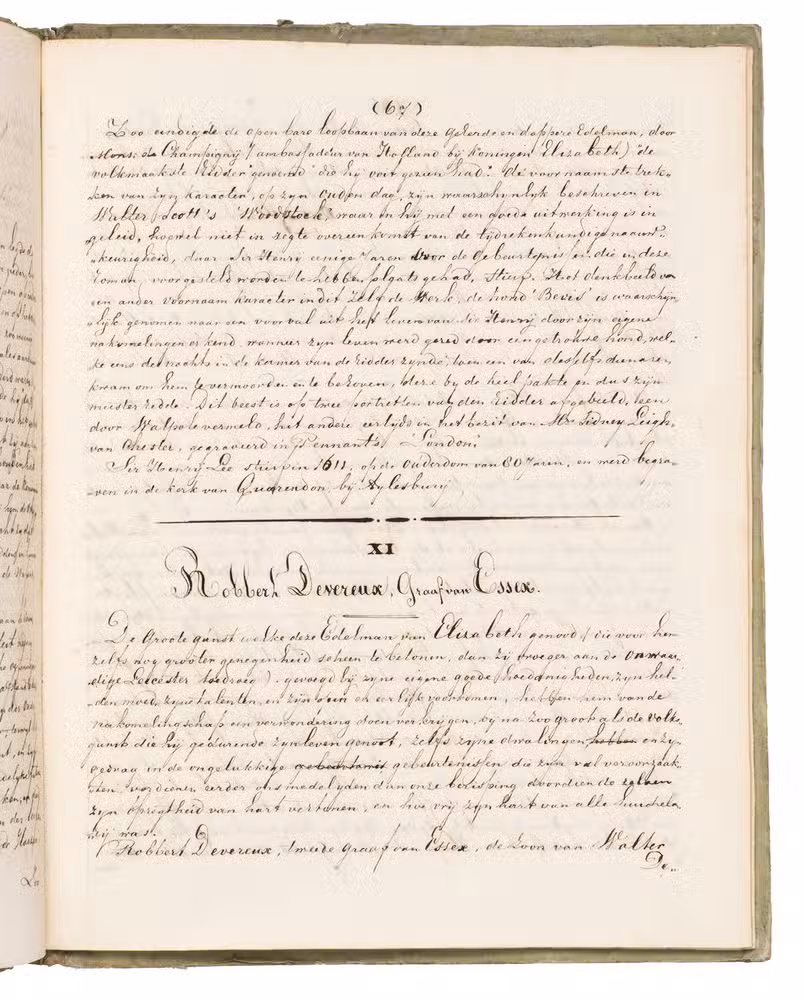 (67)
Zoo eindigde de openbare loopbaan van deze geleerde en dappere Edelman, door
Mons: de Champignij (ambassadeur van Holland bij Koningen Elizabeth) "de
volmaakste Ridder genoemd die hij ooit gezien had." De voornaamste trek-
ken van zijn karacter, op zijn ouden dag, zijn waarschynlyk beschreven in
Walter Scott's "Woodstock", waar in hij met een goede uitwerking is in
geleid, hoewel niet in overeenkomst van de tijdrekenkundige naauw-
keurigheid, daar Sir Henry eenige Jaren voor de Gebeurtenissen die in deze
roman, voorgesteld worden te hebben plaats gehad, Stierf. Het denkbeeld van
een ander voornaam karacter in dit Zelfde Werk, de hond 'Bevis' is waarschijn
lijk genomen naar een voorval uit het leven van die Henrij door zijn eigene
nakomelingen erkend, wanneer zijn leven werd gered door een getrouwe hond, wel-
ke eens des nachts in de kamer van de Ridder zynde, toen een van deszelfs dienaren
kwam om hem te vermoorden en te beroven, deze by de keel pakte en dus zijn
meester redde. Dit beest is op twee portretten van den Ridder afgebeeld, een
door Walpole vermeld, het andere eertyds in het bezit van Mr Sidney Leigh
van Chester, gegravierd in Pennant's 'London'
Sir Henrij Lee stierf in 1611, op den ouderdom van 80 Jaren, en werd begra-
ven in de kerk van Quarendon bij Aylesburij
XI
Robbert Devereux, Graaf van Essex.
De Groote gunst welke deze Edelman van Elizabeth genood, (die voor hem
zelfs nog grooter genegenheid scheen te betonen, dan zij vroeger aan de onwaar-
dige Leicester toedraeg) gevoegd bij zyne eigene goede hoedanigheden, zijn hel-
denmoed, zyne talenten, en zijn open en eerlijk voorkomen, hebben hem van de
nakomelingschap een verwondering doen verkrijgen, bij na zoo groot als de volks-
gunst die hij gedurende zyn leven genoot, zelfs zyne dwalingen, hebben en zyn
gedrag in de ongelukkige gebeurtenissen die zijn val veroorzaak
ten, verdienen eerder ons medelyden dan onze berisping doordien de zelven
zyn opregtheid van hart vertonen, en hoe vrij zyn hart van alle huichela
rij was.
Robbert Devereux, tweede Graaf van Essex, de Zoon van Walter
De-